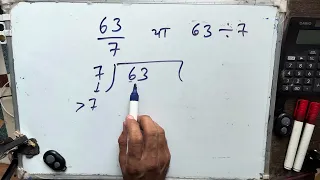 63/7 या 63 ÷ 7
7 ) 63 (
> 7